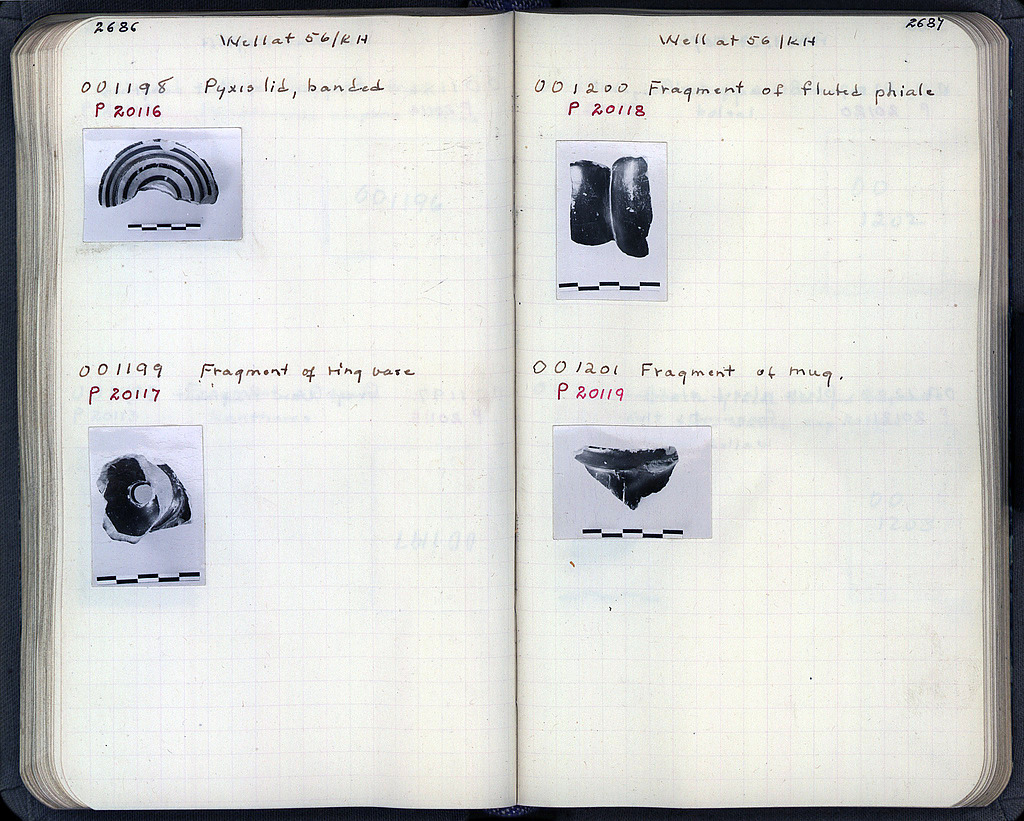 2686
Well at 56/KH
OO 1198 Pyxis lid, banded
P 20116
OO 1199 Fragment of ring base
P 20117
2687
Well at 56/KH
OO 1200 Fragment of fluted phiale
P 20118
OO 1201 Fragment of mug.
P 20119